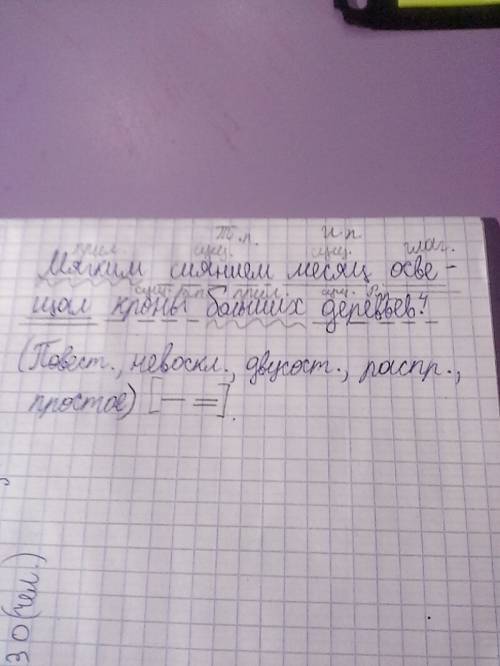 Т.п. И.п.
прил. сущ. сущ. глаг.
Мягким сиянием месяц осве-
сущ. В.п. прил. сущ. Р.п.
щал кроны больших деревьев.⁴
(Повест., невоскл., двусост., распр.,
простое) [— =].
30 (чел.)